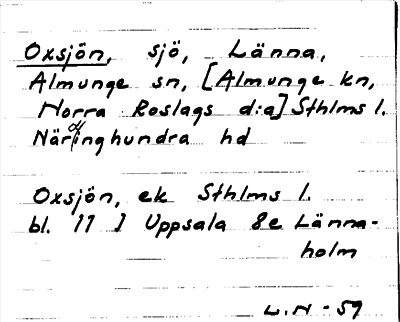 Oxsjön, sjö, Länna,
Almunge sn, [Almunge kn,
Norra Roslags d:a] Sthlms l.
Närdinghundra hd
Oxsjön, ek Sthlms l.
bl. 11 I Uppsala 8e Länna-
holm
L.N - 59